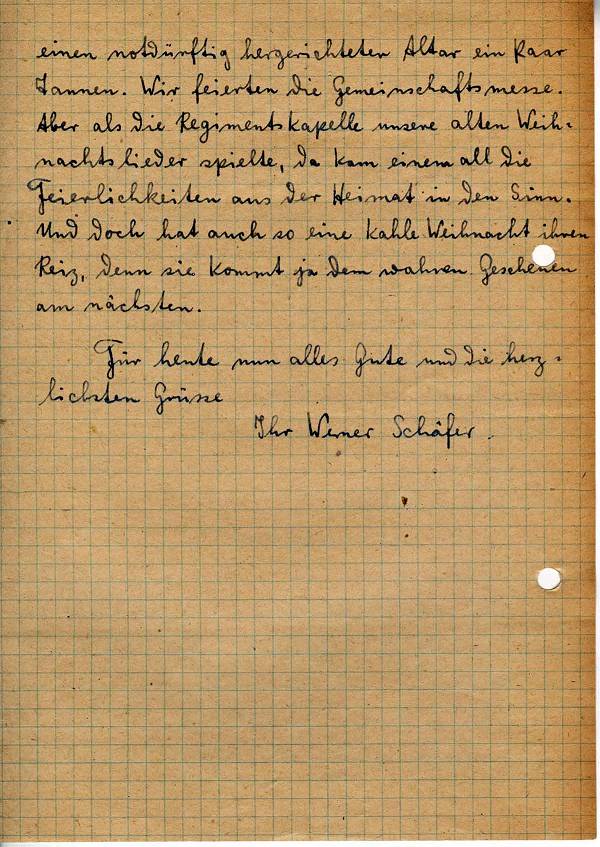 einen notdürftig hergerichteten Altar ein Paar
Tannen. Wir feierten die Gemeinschaftsmesse.
Aber als die Regimentskapelle unsere alten Weih=
nachtslieder spielte, da kam einem all die
Feierlichkeiten aus der Heimat in den Sinn.
Und doch hat auch so eine kahle Weihnacht ihren
Reiz, denn sie kommt ja dem wahren Geschehen
am nächsten.
Für heute nun alles Gute und die herz=
lichsten Grüsse
Ihr Werner Schäfer.